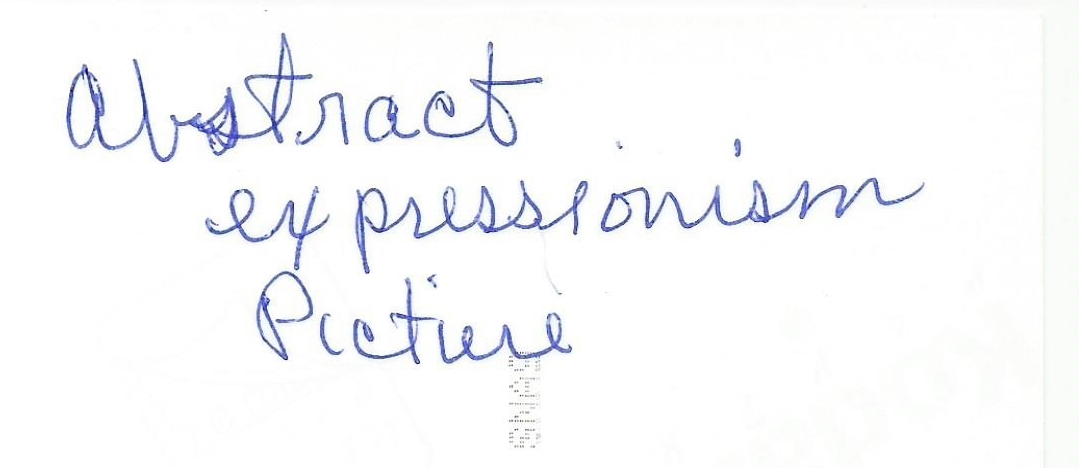 Abstract
expressionism
Picture